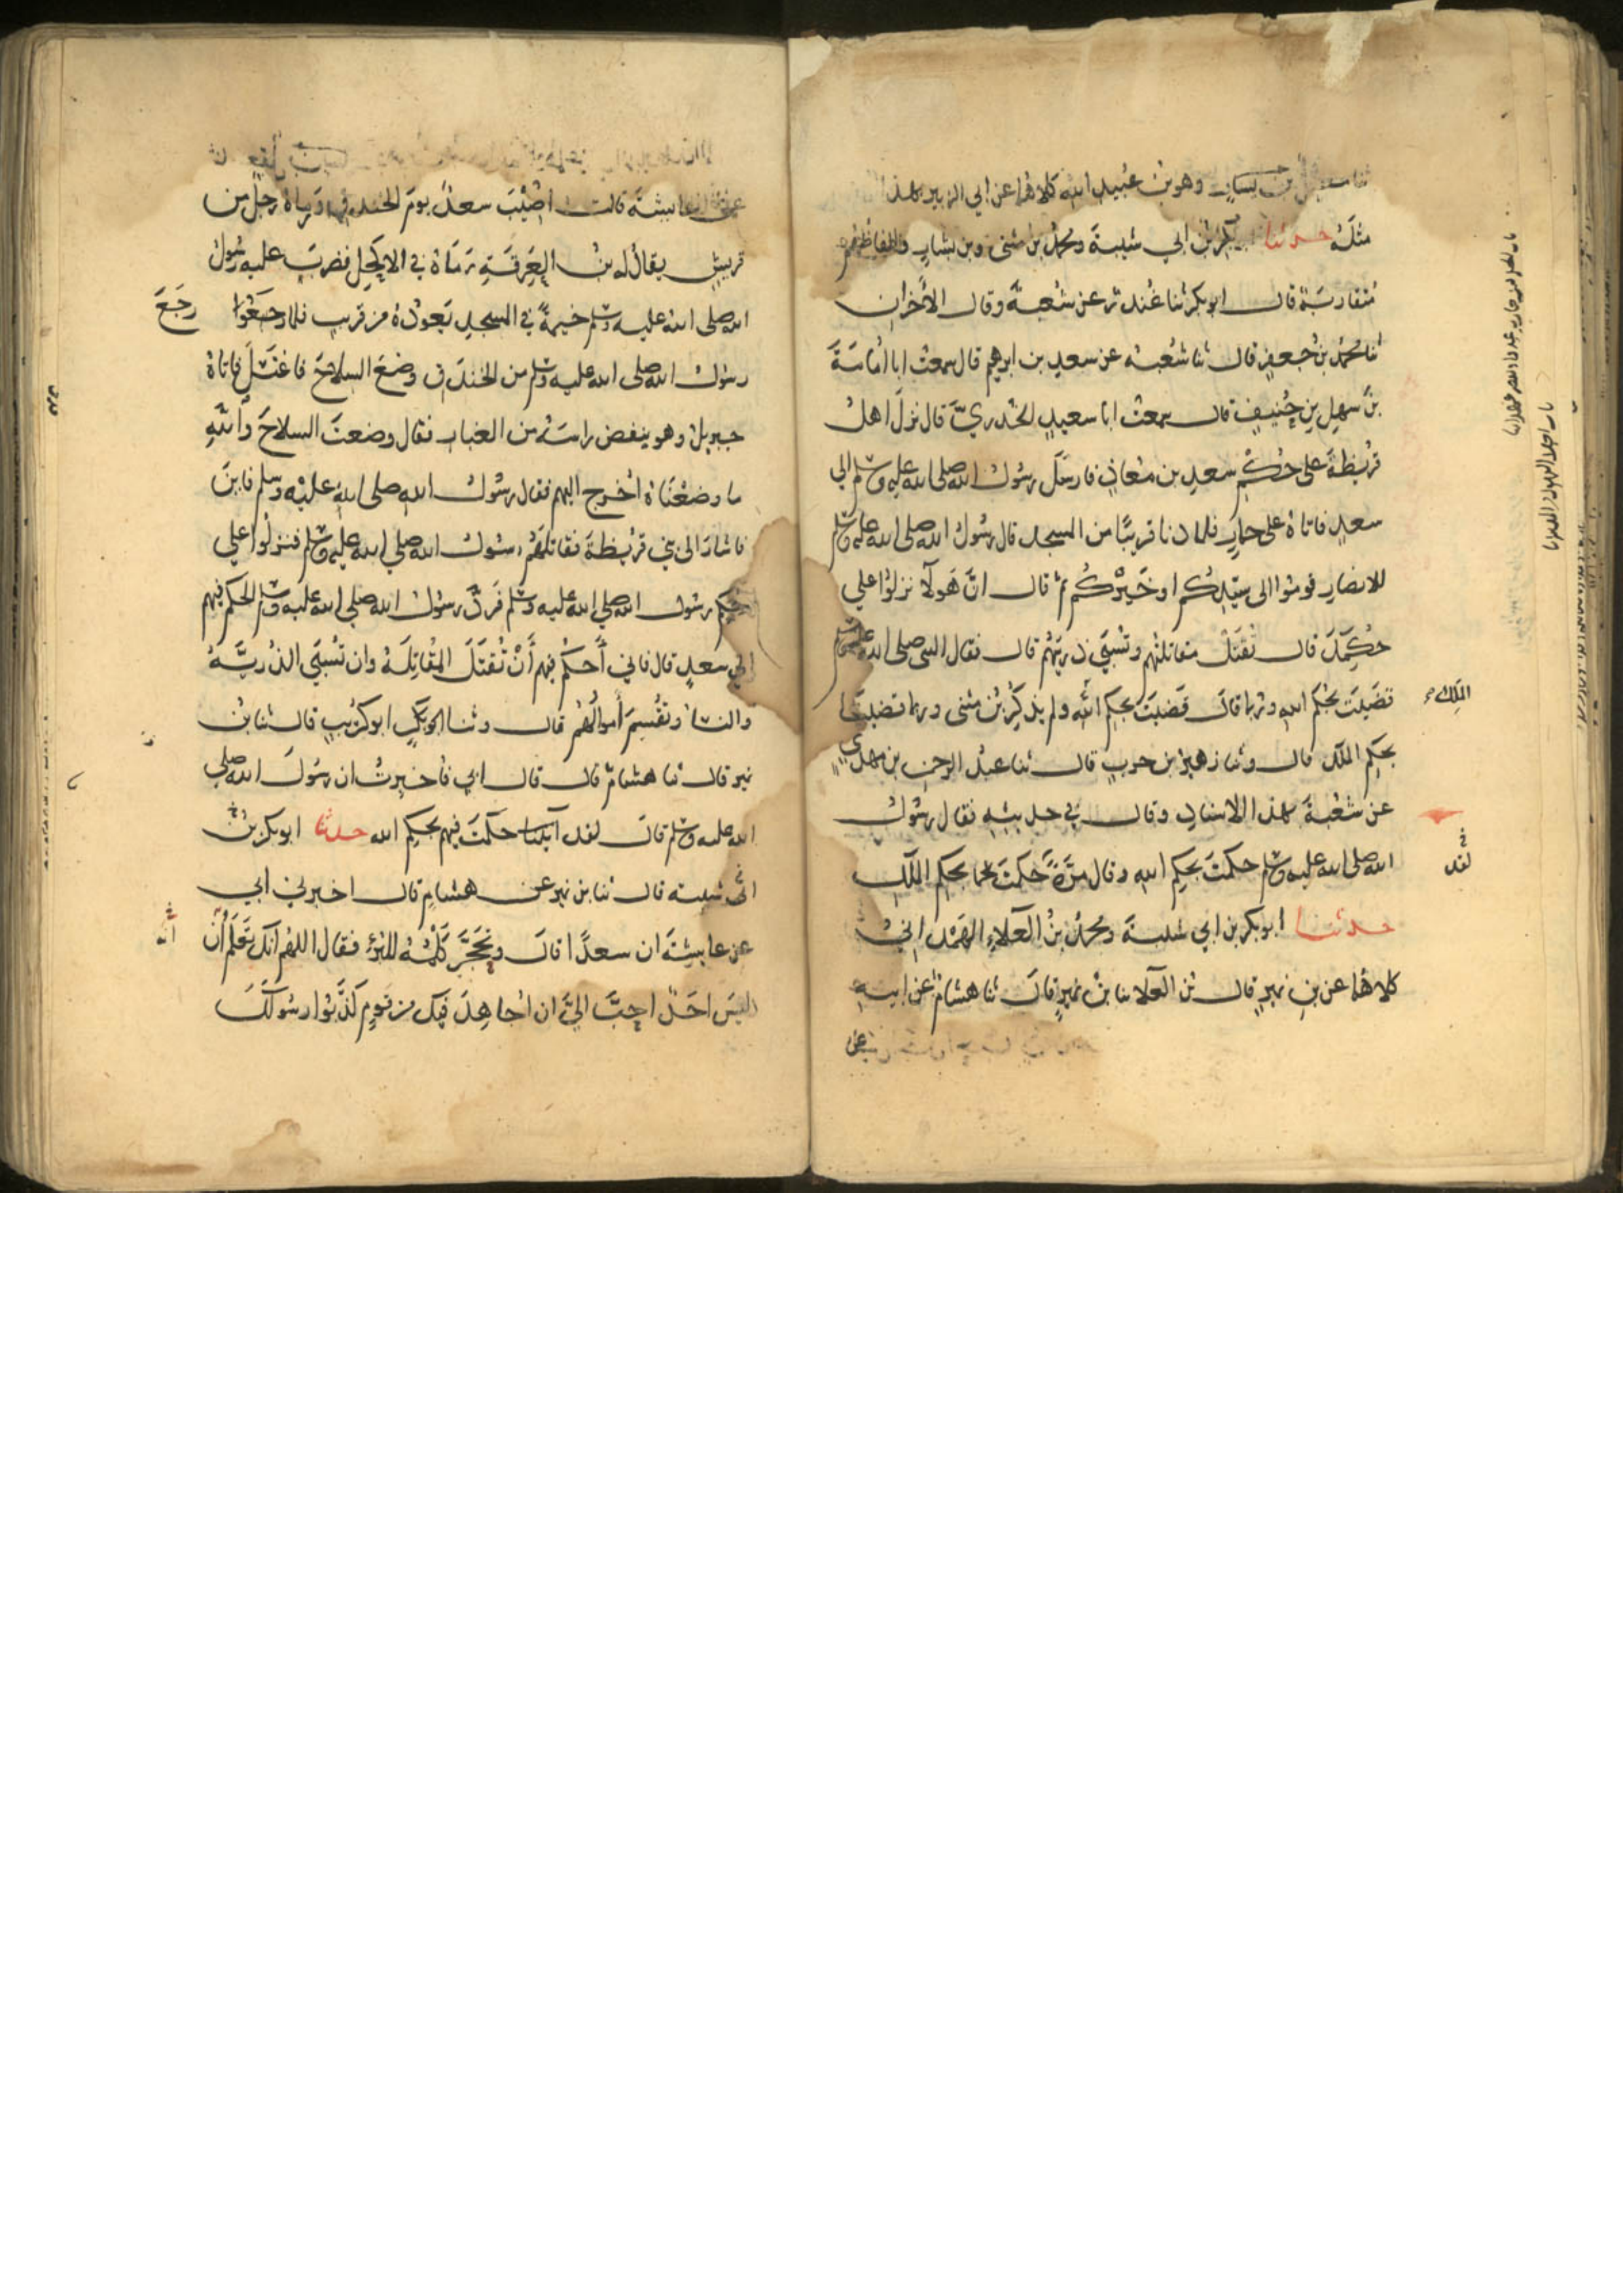 وهو بن عبيد الله كلاهما عن ابي الزبير بهذا
مثله حدثنا ابو بكر بن ابي شيبة ومحمد بن مثنى وبن بشار والفاظهم
متقاربة قال ابو بكر ثنا غندر عن شعبة وقال الاخران
ثنا محمد بن جعفر قال ثنا شعبة عن سعد بن ابرهيم قال سمعت ابا أمامة
بن سهل بن حنيف قال سمعت ابا سعيد الخدري قال نزل اهل
قريظة على حكم سعد بن معاذ فارسل رسول الله صلى الله عليه وسلم الي
سعد فاتاه على حمار فلما دنا قريبا من المسجد قال رسول الله صلى الله عليه وسلم
للانصار قوموا الى سيدكم او خيركم ثم قال ان هولا نزلوا علي
حكمك قال تقتل مقاتلتهم وتسبي ذريتهم قال فقال النبي صلى الله عليه وسلم
قضيت بحكم الله وربما قال قضيت بحكم الله ولم يذكر بن مثنى وربما قضيت
الملك
بحكم الملك قال وثنا زهير بن حرب قال ثنا عبد الرحمن بن مهدي
عن شعبة بهذا الاسناد وقال في حديثه فقال رسول
الله صلى الله عليه وسلم حكمت بحكم الله وقال مرة حكمت بحكم الملك
لقد
حدثنا ابو بكر بن ابي شيبة ومحمد بن العلاء الهمداني
كلاهما عن بن نمير قال بن العلا ثنا بن نمير قال ثنا هشام عن ابيه
عن
عن عايشة قالت اصيب سعد يوم الخندق رماه رجل من
قريش يقال له بن العرقة رماه في الاكحل فضرب عليه رسول
الله صلى الله عليه وسلم خيمة في المسجد يعوده من قريب فلما رجعوا
رجع
رسول الله صلى الله عليه وسلم من الخندق وضع السلاح فاغتسل فاتاه
جبريل وهو ينفض راسه من الغبار فقال وضعت السلاح والله
ما وضعناه اخرج اليهم فقال رسول الله صلى الله عليه وسلم فاين
فاشار الى بني قريظة فقاتلهم رسول الله صلي الله عليه وسلم فنزلوا علي
حكم رسول الله صلي الله عليه وسلم فرد رسول الله صلي الله عليه وسلم الحكم فيهم
الي سعد قال فاني أحكم فيهم أن تقتل المقاتلة وان تسبي الذرية
والنسا وتقسم أموالهم قال وثنا ابو كريب قال ثنا بن
نمير قال ثنا هشام قال قال ابي فاخبرت ان رسول الله صلي
الله عليه وسلم قال لقد حكمت فيهم بحكم الله حدثنا ابو بكر بن
ابي شيبة قال ثنا بن نمير عن هشام قال اخبرني ابي
عن عايشة ان سعدا قال وتحجر كلمه للبرء فقال اللهم انك تعلم أن
انه
ليس احد احب الي ان اجاهد فيك من قوم كذبوا رسولك